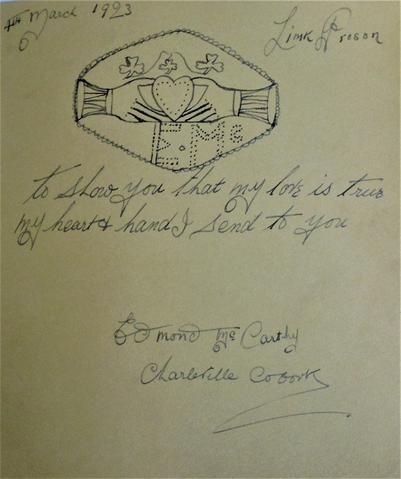 4th March 1923
Limk Prison
E. Mc
to show you that my love is true
my heart & hand I send to you
Edmond Mc Carthy
Charleville Co Cork